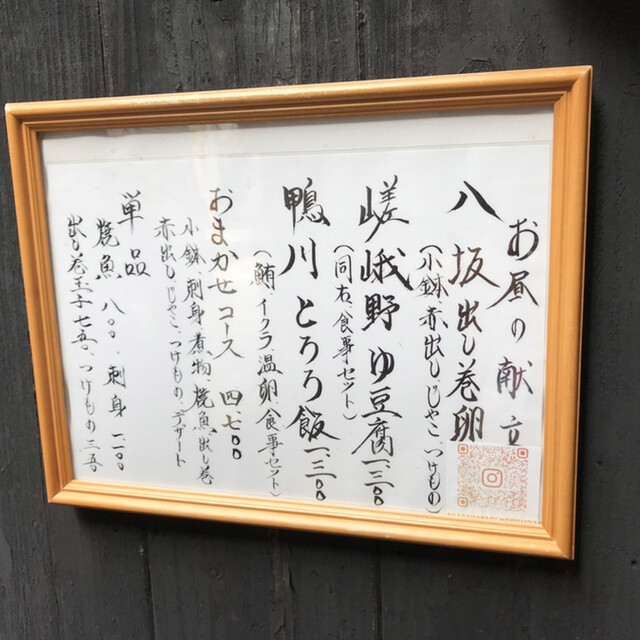 お昼の献立
八坂出し巻卵
(小鉢、赤出し、じゃこ、つけもの)
嵯峨野ゆ豆腐 一、三〇〇
(同右、食事セット)
鴨川とろろ飯 一、三〇〇
(鮪、イクラ、温卵、食事セット)
おまかせコース 四、七〇〇
小鉢、刺身、煮物、焼魚、出し巻
赤出し、じゃこ、つけもの、デザート
単品
焼魚 八〇〇、刺身 一、二〇〇
出し巻玉子 七五〇、つけもの 三五〇